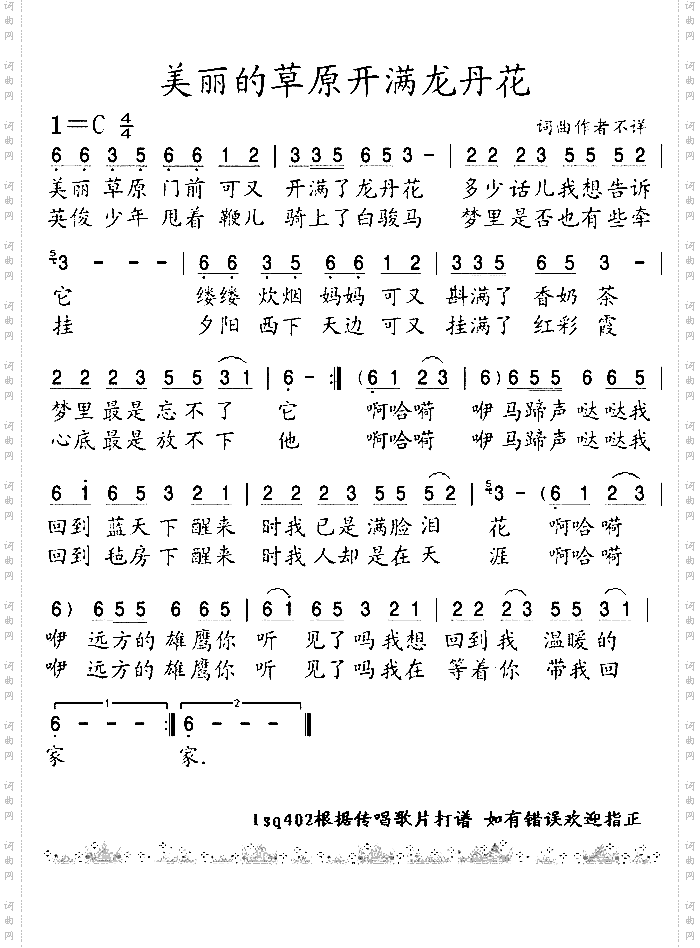 美丽的草原开满龙丹花
1=C 4/4
词曲作者不详
6 6 3 5 6 6 1 2 | 3 3 5 6 5 3 - | 2 2 2 3 5 5 5 2 |
美丽 草原 门前 可又 开满了龙丹花 多少话儿我想告诉
英俊 少年 甩着 鞭儿 骑上了白骏马 梦里是否也有些牵
5 3 - - - | 6 6 3 3 6 6 1 2 | 3 3 5 6 5 3 - |
它 缕缕 炊烟 妈妈 可又 斟满了 香奶 茶
挂 夕阳 西下 天边 可又 挂满了 红彩 霞
2 2 2 3 5 5 3 1 | 6 - :‖ (6 1 2 3 | 6) 6 5 5 6 6 6 5 |
梦里 最是 忘不 了 它 啊哈嗬 咿 马蹄声 哒哒我
心底 最是 放不 下 他 啊哈嗬 咿 马蹄声 哒哒我
6 i 6 5 3 2 1 | 2 2 2 3 5 5 5 2 | 5 3 - (6 1 2 3 |
回到 蓝天下 醒来 时我 已是 满脸 泪 花 啊哈 嗬
回到 毡房下 醒来 时我 人却 是在 天 涯 啊哈 嗬
6) 6 5 5 6 6 6 5 | 6 i 6 5 3 2 1 | 2 2 2 3 5 5 3 1 |
咿 远方的 雄鹰你 听 见了吗我想 回到我 温暖的
咿 远方的 雄鹰你 听 见了吗我在 等着你 带我回
1 2
6 - - - :‖ 6 - - - ‖
家 家.
lsq402根据传唱歌片打谱 如有错误欢迎指正
词曲网